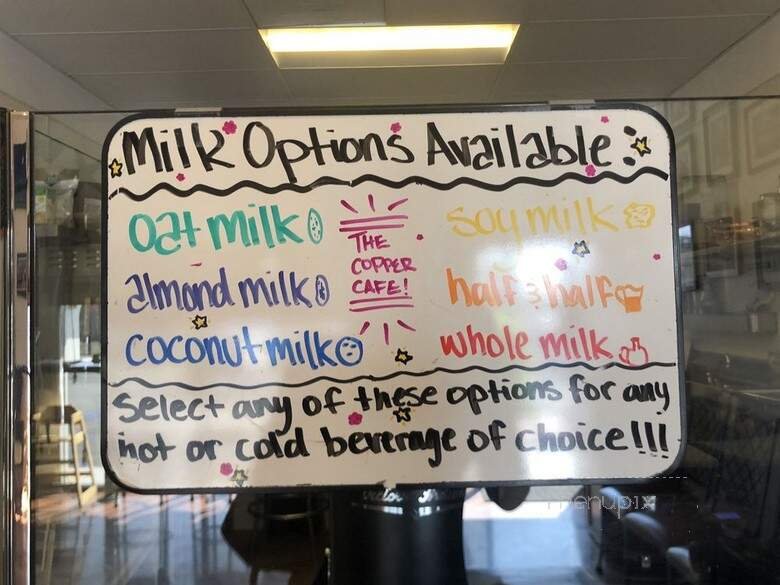 Milk Options Available:
oat milk
almond milk
coconut milk
THE
COPPER
CAFE!
soy milk
half & half
whole milk
Select any of these options for any
hot or cold beverage of choice!!!
menupix